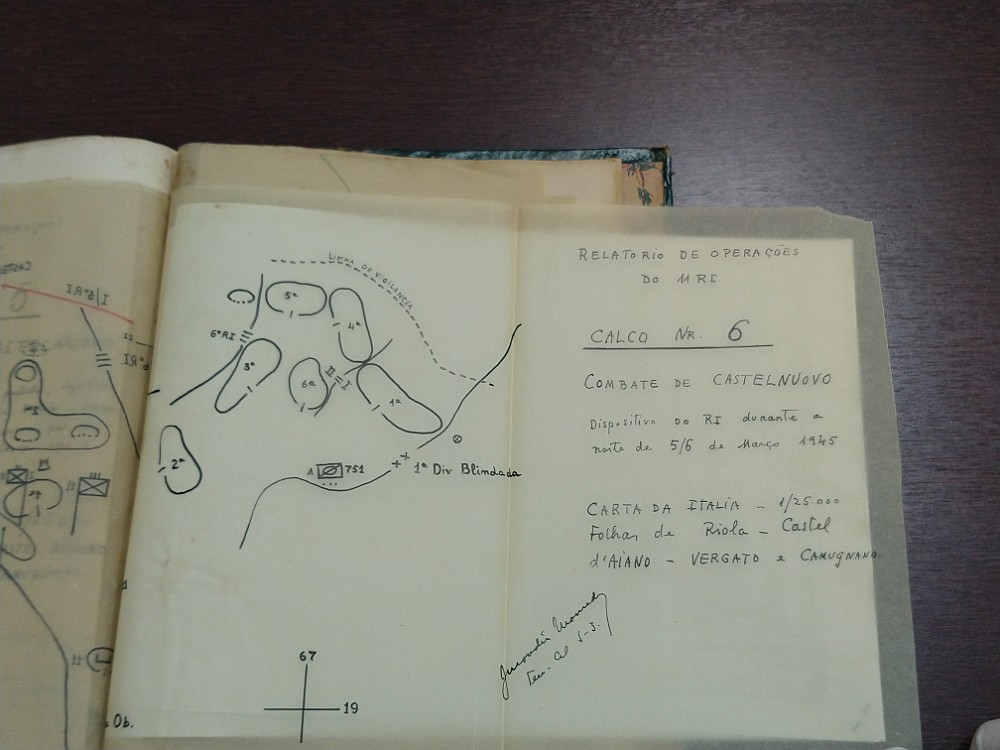 LINHA DE VIGILANCIA
5ª
4ª
6º RI
3ª
6ª
II
I
1ª
2ª
A 751
1ª Div Blindada
67
19
Ob.
RELATORIO DE OPERAÇÕES
DO 11 RI.
CALCO NR. 6
COMBATE DE CASTELNUOVO
Dispositivo do RI durante a
noite de 5/6 de Março 1945
CARTA DA ITALIA - 1/25.000
Folhas de Riola - Castel
d'AIANO - VERGATO e CAMUGNANO
Ten. Cel S-3.
I/6º RI